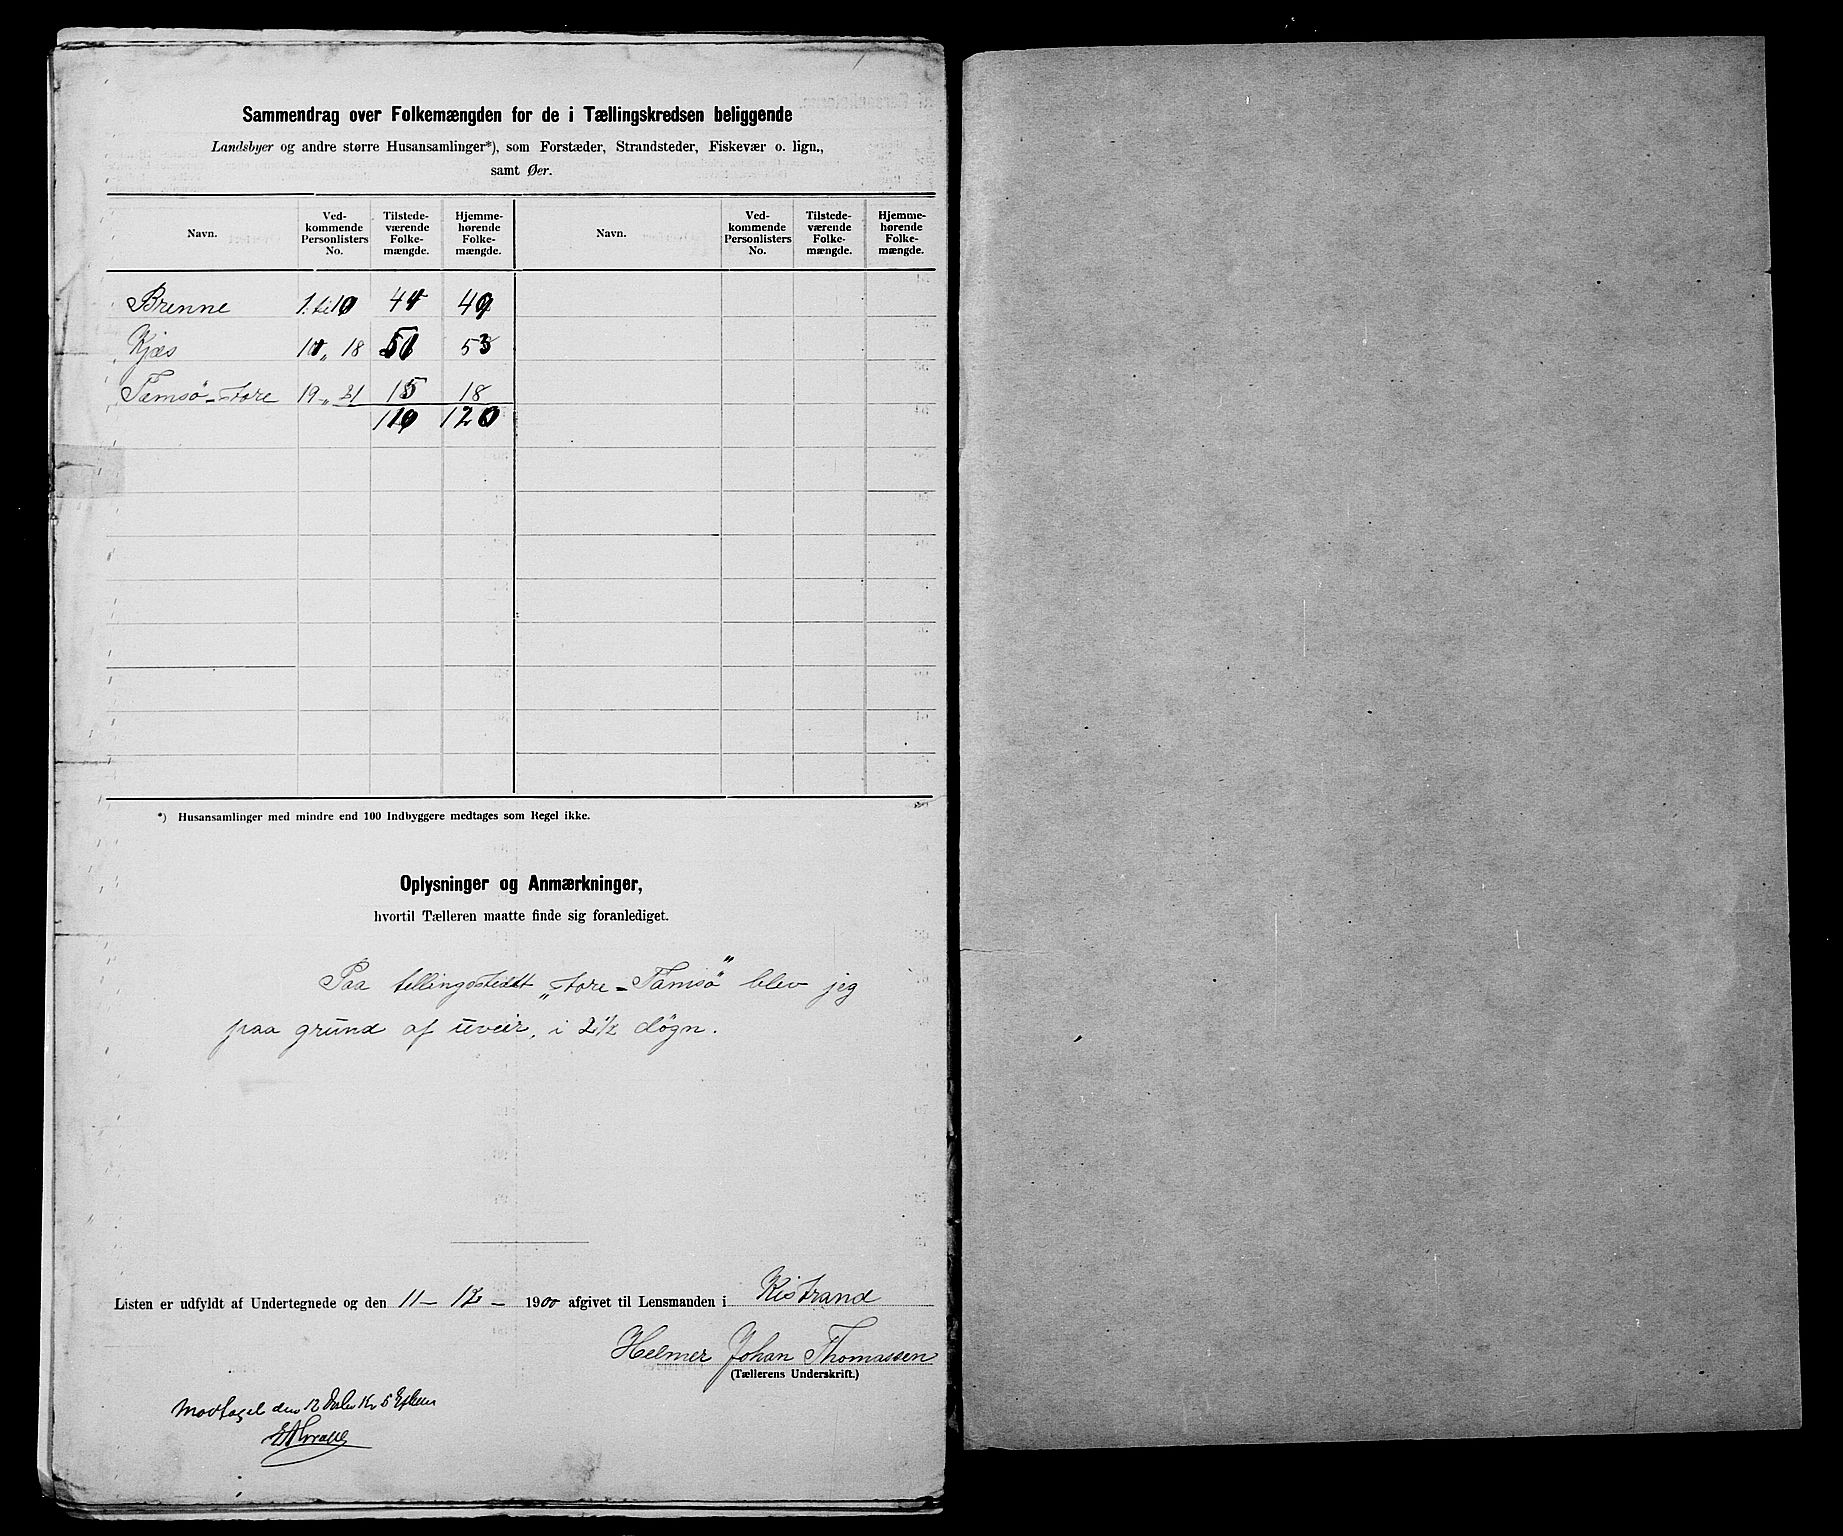 Sammendrag over Folkemængden for de i Tællingskredsen beliggende
Landsbyer og andre større Husansamlinger*), som Forstæder, Strandsteder, Fiskevær o. lign.,
samt Øer.
Navn. Ved-kommende Personlisters No. Tilstede-værende Folke-mængde. Hjemme-hørende Folke-mængde. Navn. Ved-kommende Personlisters No. Tilstede-værende Folke-mængde. Hjemme-hørende Folke-mængde.
Brenne 1 til 10 44 49
Kjæs 11 „ 18 51 53
Tamsö-store 19 „ 21 15 18
110 120
*) Husansamlinger med mindre end 100 Indbyggere medtages som Regel ikke.
Oplysninger og Anmærkninger,
hvortil Tælleren maatte finde sig foranlediget.
Paa tellingsstedtt „store-Tamsö" blev jeg
paa grund af uveir, i 2 1/2 døgn.
Listen er udfyldt af Undertegnede og den 11 - 12 - 1900 afgivet til Lensmanden i Kistrand
Helmer Johan Thomassen
(Tællerens Underskrift.)
Modtaget den 12 Kl 5